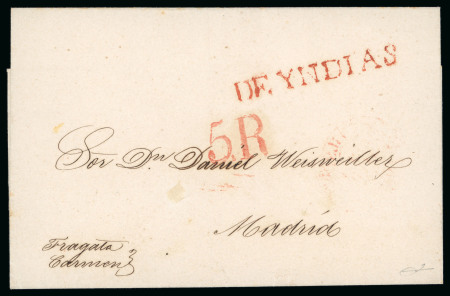 DE YNDIAS
5R
Sor Dn Daniel Weisweiller
Madrid
Fragata
Carmen